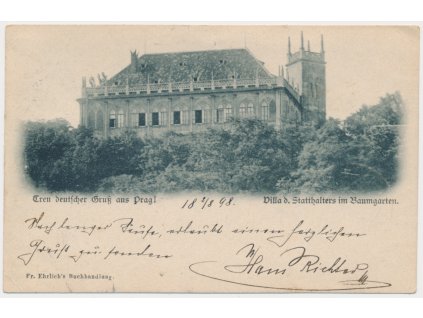 Treu deutscher Gruß aus Prag!
Villa d. Statthalters im Baumgarten.
18 1/8 98.
Nach langer Pause, erlaubt einen herzlichen
Gruß zu senden
Hans Richter
Fr. Ehrlich's Buchhandlung.